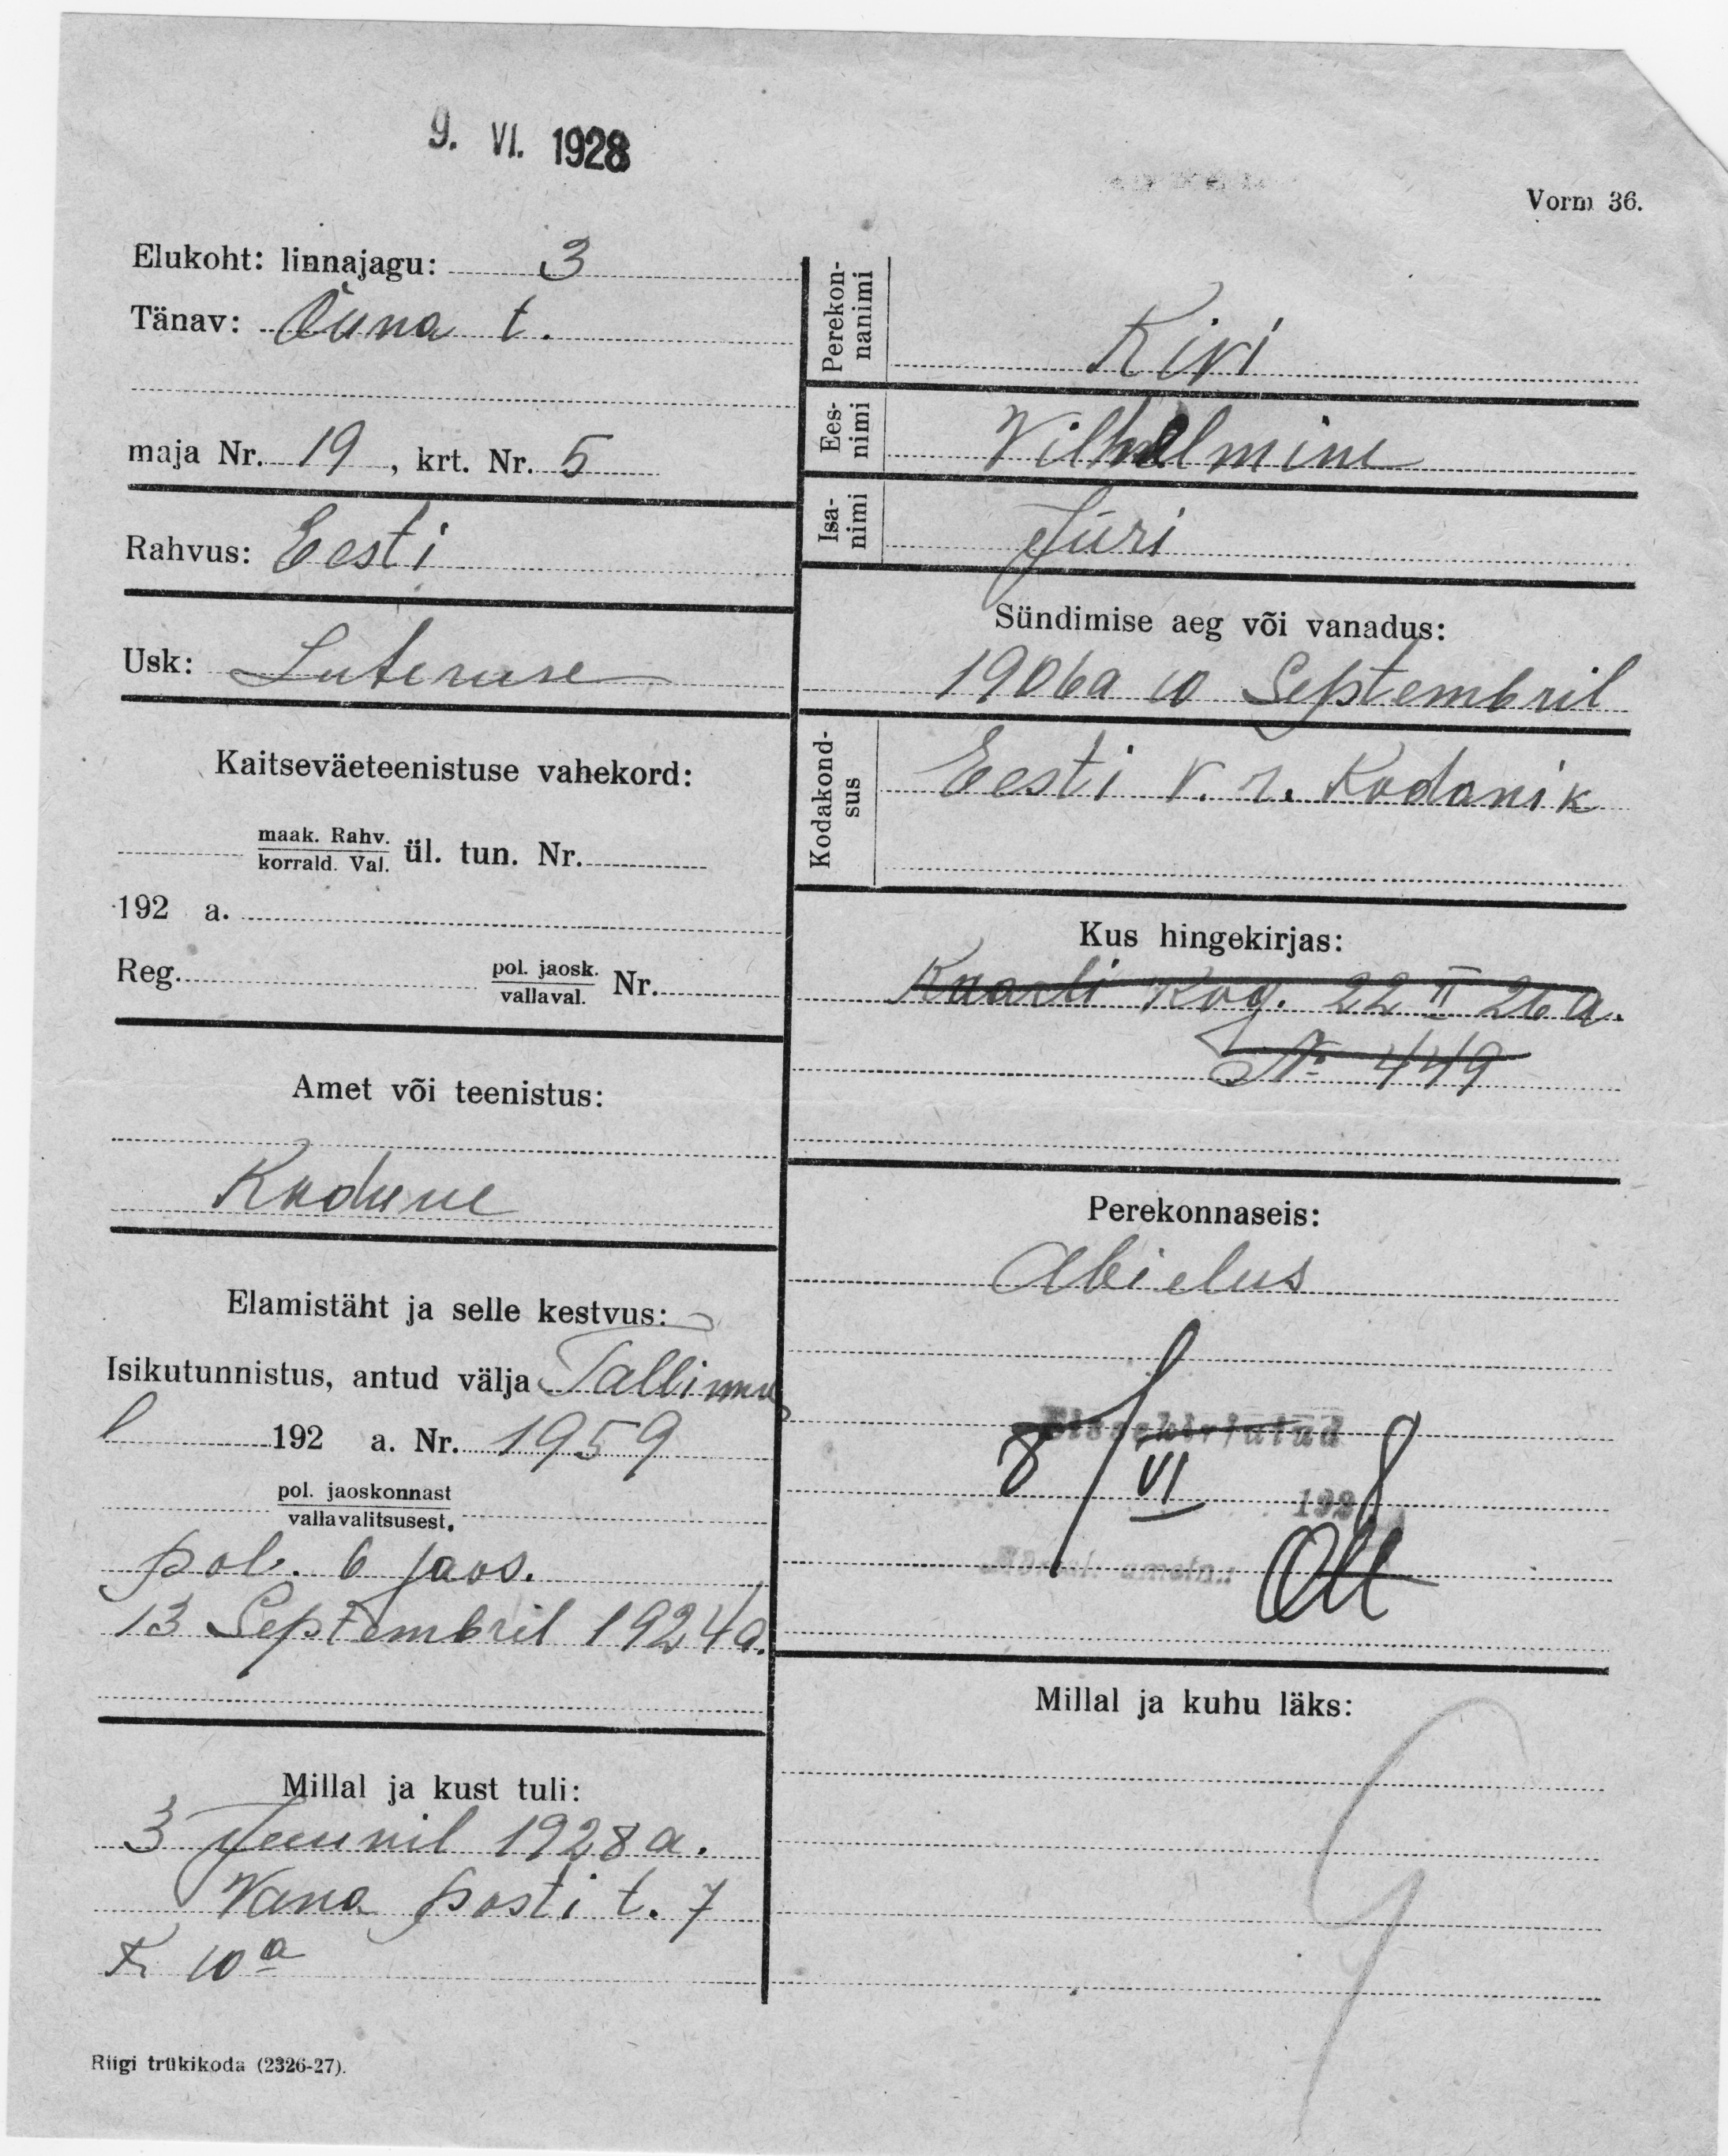 9. VI. 1928
Vorm 36.
Elukoht: linnajagu: 3
Tänav: Õuna t.
maja Nr. 19, krt. Nr. 5
Rahvus: Eesti
Usk: Luteruse
Kaitseväeteenistuse vahekord:
maak. Rahv.
korrald. Val. ül. tun. Nr.
192 a.
Reg. pol. jaosk.
vallaval. Nr.
Amet või teenistus:
Kodune
Elamistäht ja selle kestvus:
Isikutunnistus, antud välja Tallinna
192 a. Nr. 1959
pol. jaoskonnast
vallavalitsusest.
pol. 6 jaos.
13 Septembril 1924a.
Millal ja kust tuli:
3 Juunil 1928 a.
Vana posti t. 7
K 10 a
Riigi trükikoda (2326-27).
Perekon-
nanimi
Kivi
Ees-
nimi
Vilhelmine
Isa-
nimi
Jüri
Sündimise aeg või vanadus:
1906a 10 Septembril
Kodakond-
sus
Eesti V. r. Kodanik
Kus hingekirjas:
Kaarli Kog. 22 II 26 a.
№ 449
Perekonnaseis:
Abielus
Sissekirjutud
8/VI 1928
ametn.:
Millal ja kuhu läks: